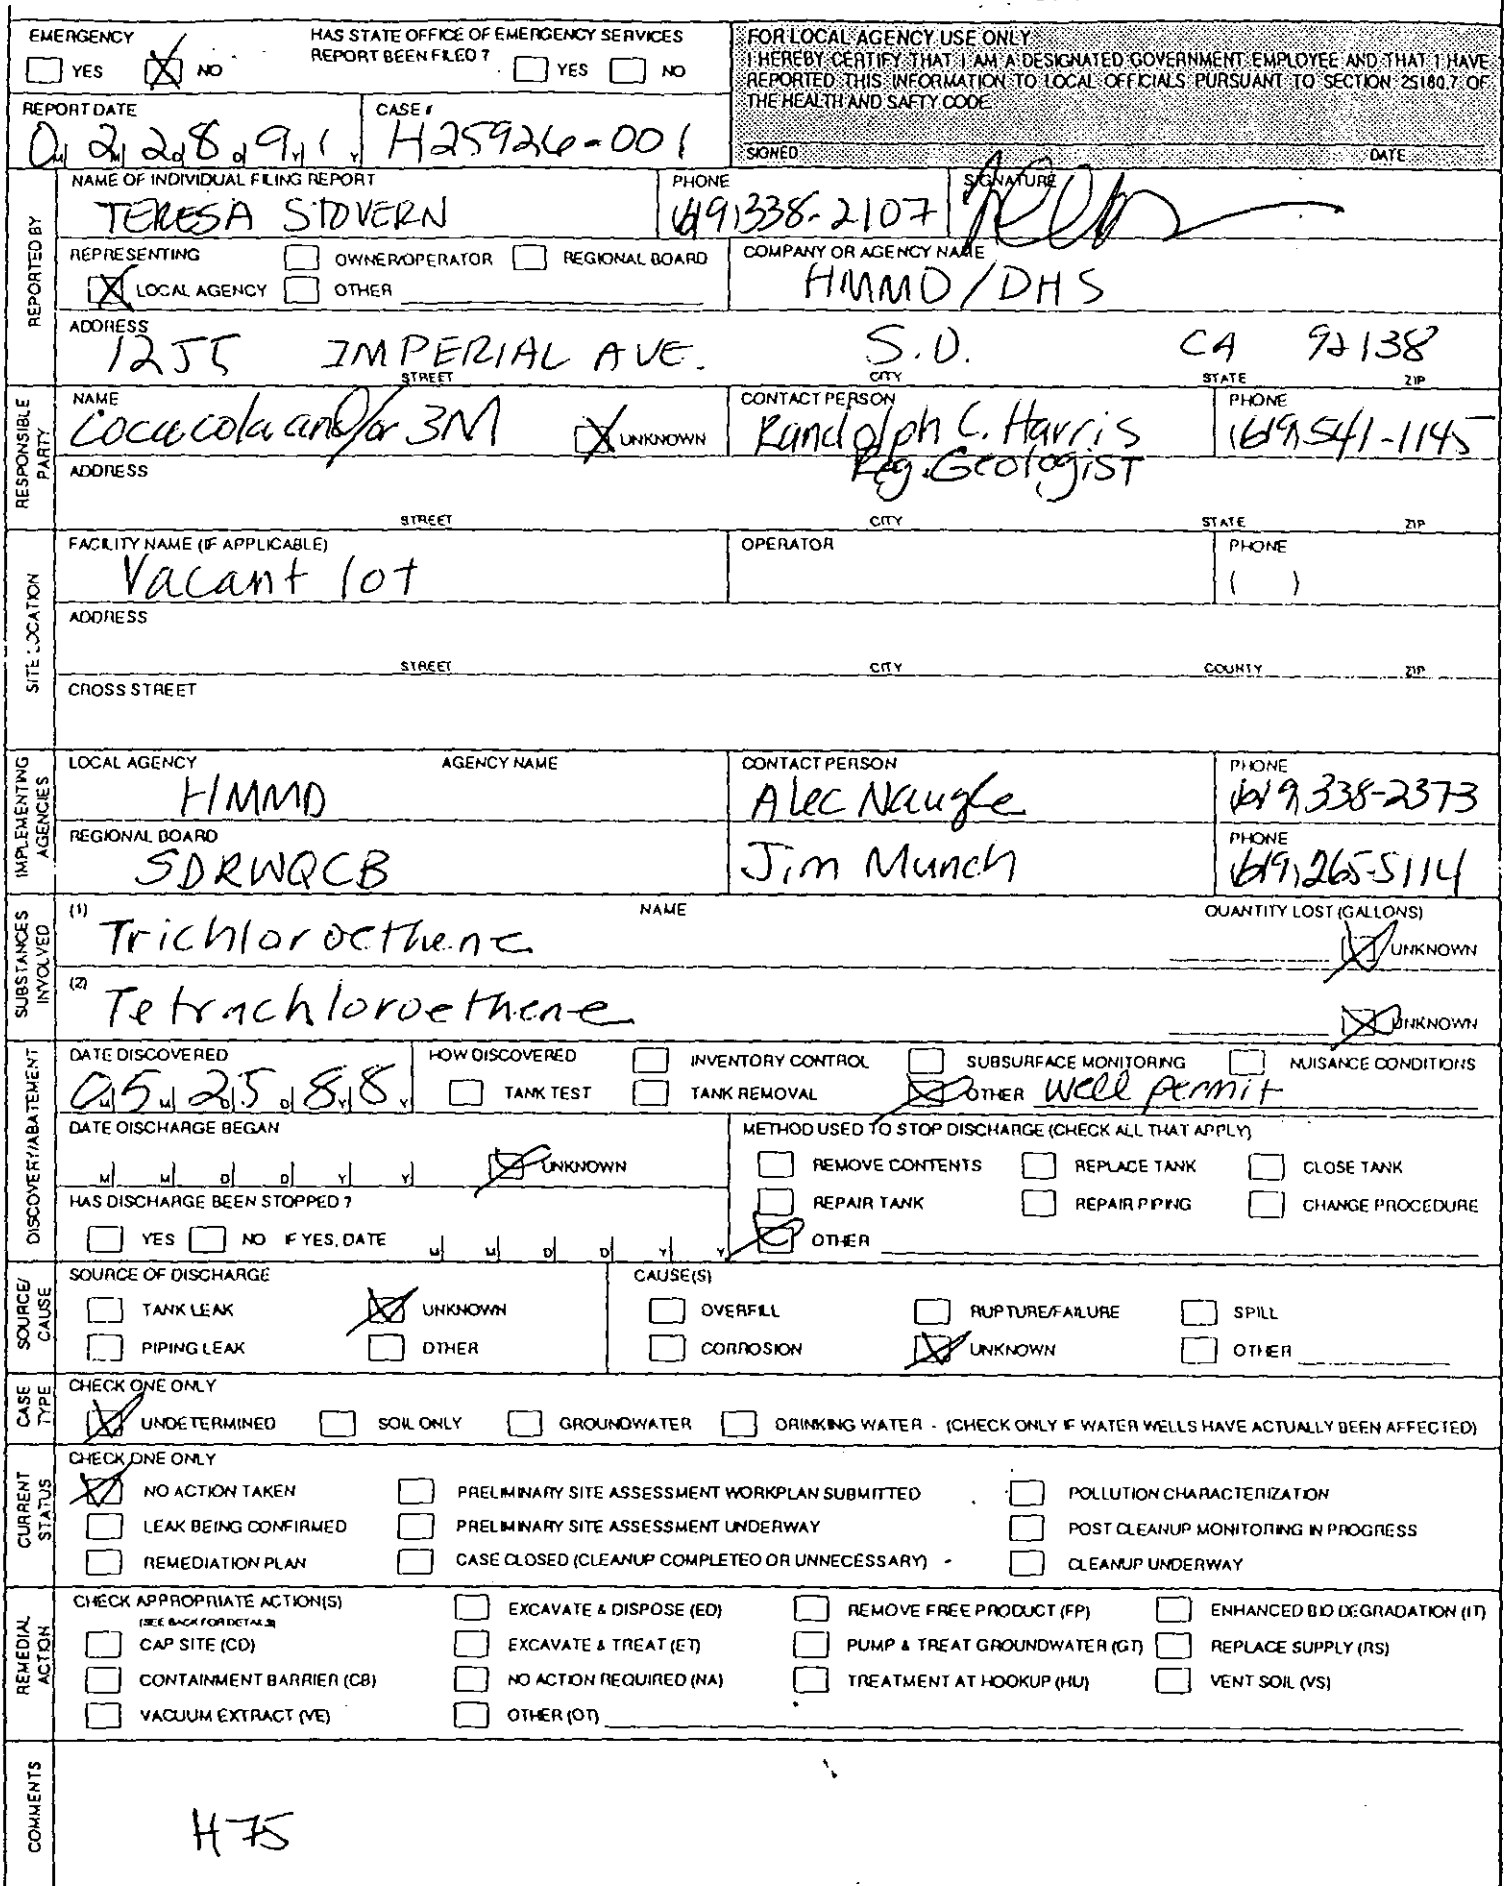 EMERGENCY
YES NO
HAS STATE OFFICE OF EMERGENCY SERVICES
REPORT BEEN FILED ? YES NO
FOR LOCAL AGENCY USE ONLY
I HEREBY CERTIFY THAT I AM A DESIGNATED GOVERNMENT EMPLOYEE AND THAT I HAVE
REPORTED THIS INFORMATION TO LOCAL OFFICIALS PURSUANT TO SECTION 25180.7 OF
THE HEALTH AND SAFTY CODE
SIGNED DATE
REPORT DATE
0 2 2 8 9 1
M M D D Y Y
CASE #
H25926-001
REPORTED BY
NAME OF INDIVIDUAL FILING REPORT
TERESA STOVERN
PHONE
(619) 338-2107
SIGNATURE
REPRESENTING OWNER/OPERATOR REGIONAL BOARD
LOCAL AGENCY OTHER
COMPANY OR AGENCY NAME
HMMD/DHS
ADDRESS
1255 IMPERIAL AVE. S.D. CA 92138
STREET CITY STATE ZIP
RESPONSIBLE
PARTY
NAME
Coca cola and/or 3M UNKNOWN
CONTACT PERSON
Randolph C. Harris
Reg. Geologist
PHONE
(619) 541-1145
ADDRESS
STREET CITY STATE ZIP
SITE LOCATION
FACILITY NAME (IF APPLICABLE)
Vacant lot
OPERATOR
PHONE
( )
ADDRESS
STREET CITY COUNTY ZIP
CROSS STREET
IMPLEMENTING
AGENCIES
LOCAL AGENCY AGENCY NAME
HMMD
CONTACT PERSON
Alec Naugle
PHONE
(619) 338-2373
REGIONAL BOARD
SDRWQCB
Jim Munch
PHONE
(619) 265-5114
SUBSTANCES
INVOLVED
(1) NAME QUANTITY LOST (GALLONS)
Trichloroethene
UNKNOWN
(2)
Tetrachloroethene
UNKNOWN
DISCOVERY/ABATEMENT
DATE DISCOVERED
0 5 2 5 8 8
M M D D Y Y
HOW DISCOVERED INVENTORY CONTROL SUBSURFACE MONITORING NUISANCE CONDITIONS
TANK TEST TANK REMOVAL OTHER well permit
DATE DISCHARGE BEGAN
M M D D Y Y UNKNOWN
METHOD USED TO STOP DISCHARGE (CHECK ALL THAT APPLY)
REMOVE CONTENTS REPLACE TANK CLOSE TANK
REPAIR TANK REPAIR PIPING CHANGE PROCEDURE
OTHER
HAS DISCHARGE BEEN STOPPED ?
YES NO IF YES, DATE M M D D Y Y
SOURCE/
CAUSE
SOURCE OF DISCHARGE
TANK LEAK UNKNOWN
PIPING LEAK OTHER
CAUSE(S)
OVERFILL RUPTURE/FAILURE SPILL
CORROSION UNKNOWN OTHER
CASE
TYPE
CHECK ONE ONLY
UNDETERMINED SOIL ONLY GROUNDWATER DRINKING WATER - (CHECK ONLY IF WATER WELLS HAVE ACTUALLY BEEN AFFECTED)
CURRENT
STATUS
CHECK ONE ONLY
NO ACTION TAKEN PRELIMINARY SITE ASSESSMENT WORKPLAN SUBMITTED POLLUTION CHARACTERIZATION
LEAK BEING CONFIRMED PRELIMINARY SITE ASSESSMENT UNDERWAY POST CLEANUP MONITORING IN PROGRESS
REMEDIATION PLAN CASE CLOSED (CLEANUP COMPLETED OR UNNECESSARY) CLEANUP UNDERWAY
REMEDIAL
ACTION
CHECK APPROPRIATE ACTION(S)
(SEE BACK FOR DETAILS)
EXCAVATE & DISPOSE (ED) REMOVE FREE PRODUCT (FP) ENHANCED BIO DEGRADATION (IT)
CAP SITE (CD) EXCAVATE & TREAT (ET) PUMP & TREAT GROUNDWATER (GT) REPLACE SUPPLY (RS)
CONTAINMENT BARRIER (CB) NO ACTION REQUIRED (NA) TREATMENT AT HOOKUP (HU) VENT SOIL (VS)
VACUUM EXTRACT (VE) OTHER (OT)
COMMENTS
H75